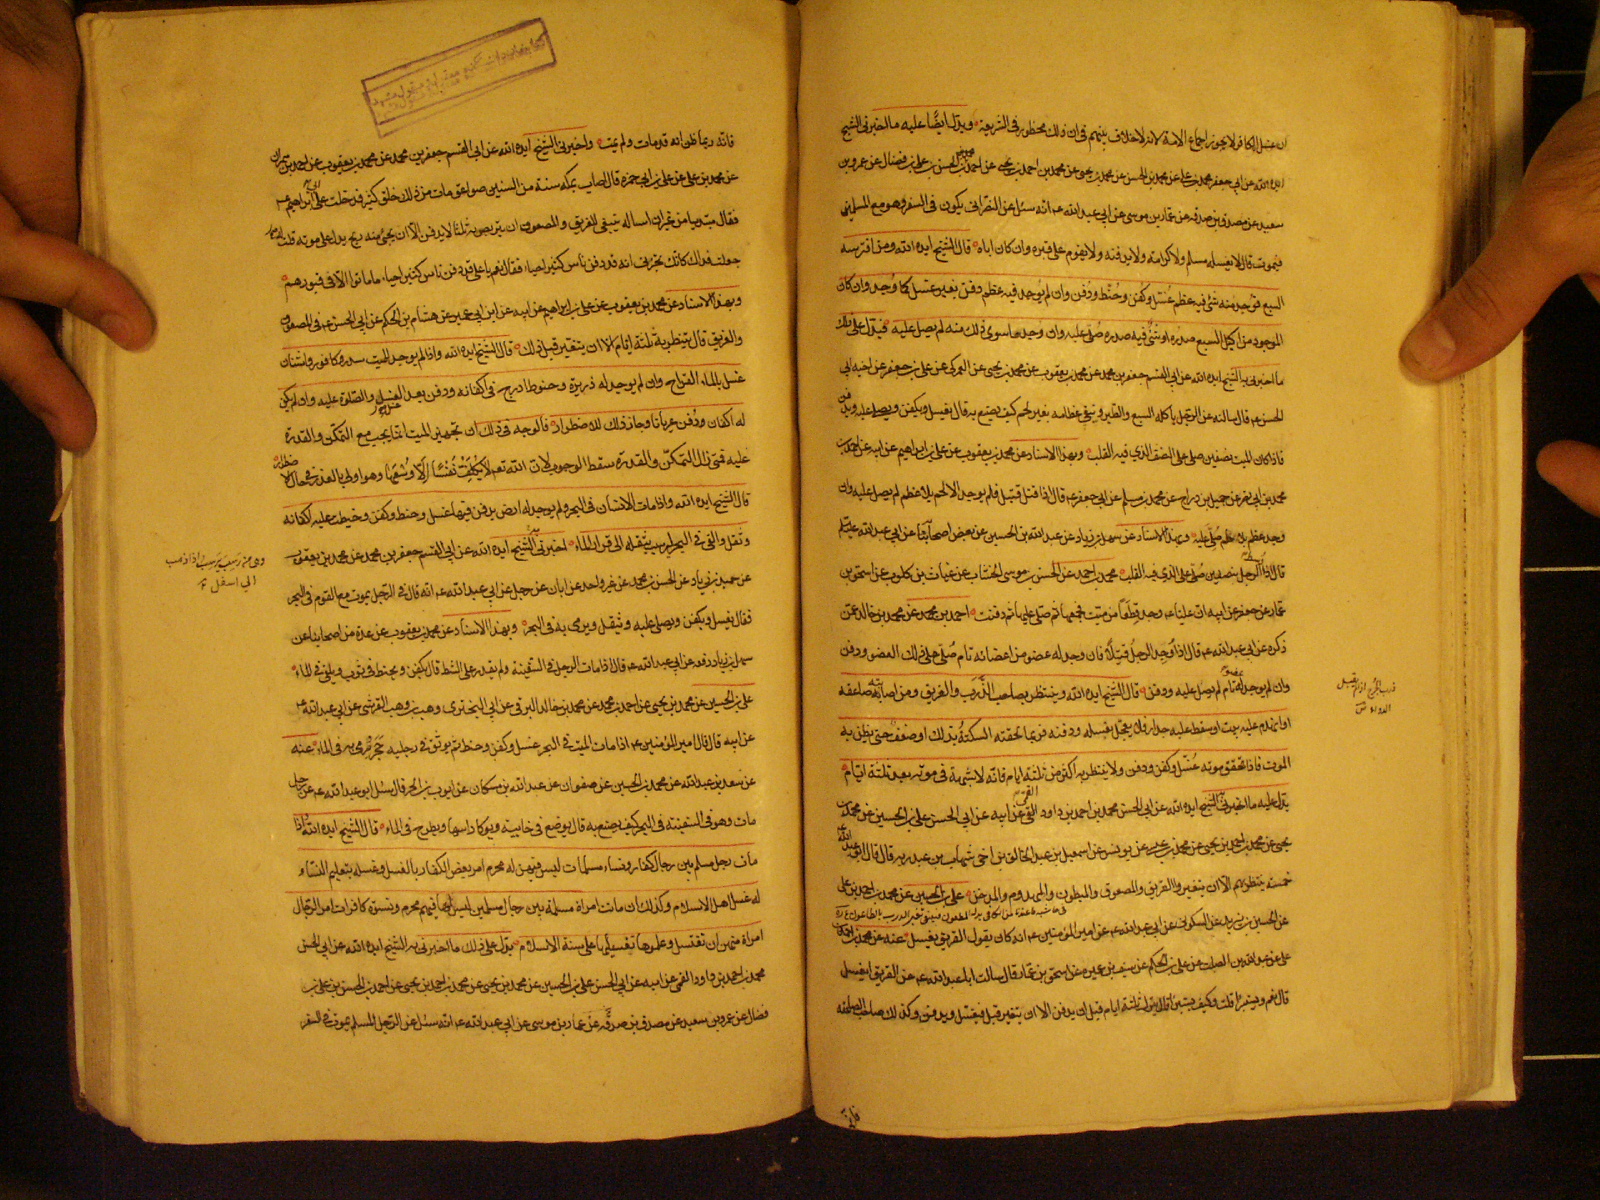 ان غسل الكافر لا يجوز اجماع الامة لانه لا خلاف بينهم فى ان ذلك محظور فى الشريعة ويدل ايضا عليه ما اخبرنى الشيخ
ايده الله عن ابى جعفر محمد بن على عن محمد بن الحسن عن محمد بن يحيى عن محمد بن احمد بن يحيى عن احمد بن الحسن بن على بن فضال عن عمرو بن
سعيد عن مصدق بن صدقه عن عمار بن موسى عن ابى عبد الله ع انه سئل عن النصرانى يكون فى السفر وهو مع المسلمين
فيموت قال لا يغسله مسلم ولا كرامة ولا يدفنه ولا يقوم على قبره وان كان اباه قال الشيخ ايده الله ومن افترسه
السبع فوجد منه شئ فيه عظم غسل وكفن وحنط ودفن وان لم يوجد فيه عظم دفن بغير غسل كما وجد وان كان
الموجود من اكيل السبع صدره او شئ فيه صدره صلى عليه وان وجد ما سوى ذلك منه لم يصل عليه فيدل على ذلك
ما اخبرنى به الشيخ ايده الله عن ابى القسم جعفر بن محمد عن محمد بن يعقوب عن محمد بن يحيى عن العمركى عن على بن جعفر عن اخيه ابى
الحسن ع قال سالته عن الرجل ياكله السبع والطير وتبقى عظامه بغير لحم كيف يصنع به قال يغسل ويكفن ويصلى عليه ويدفن
فاذا كان الميت نصفين صلى على النصف الذى فيه القلب وبهذا الاسناد عن محمد بن يعقوب عن على بن ابراهيم عن ابيه عن احمد بن
محمد بن ابى نصر عن جميل بن دراج عن محمد بن مسلم عن ابى جعفر ع قال اذا قتل قتيل فلم يوجد الا لحم بلا عظم لم يصل عليه وان
وجد عظم بلا لحم صلى عليه وبهذا الاسناد عن سهل بن زياد عن عبد الله بن الحسين عن بعض اصحابنا عن ابى عبد الله عليه السلم
قال اذا وسط الرجل نصفين صلى على الذى فيه القلب محمد بن احمد عن الحسن بن موسى الخشاب عن غياث بن كلوب عن اسحق بن
عمار عن جعفر عن ابيه ان عليا ع وجد قطعا من ميت فجمعها ثم صلى عليها ثم دفنت احمد بن محمد عن محمد بن خالد عمن
ذكره عن ابى عبد الله ع قال اذا وجد الرجل قتيلا فان وجد له عضو من اعضائه تام صلى على ذلك العضو ودفن
وان لم يوجد له عضو تام لم يصل عليه ودفن قال الشيخ ايده الله وينتظر بصاحب الذرب والغريق ومن اصابته صاعقه
او انهدم عليه بيت او سقط عليه جدار فلا يعجل بغسله ودفنه فربما لحقته السكتة بذلك او ضعف حتى يظن به
الموت فاذا تحقق موته غسل وكفن ودفن ولا ينتظر به اكثر من ثلثة ايام فانه لا شبهة فى موته بعد ثلثة ايام
يدل عليه ما اخبرنى الشيخ ايده الله عن ابى الحسن محمد بن احمد بن داود القمى عن ابيه عن ابى الحسن على بن الحسين عن محمد بن
يحيى عن محمد بن احمد بن يحيى عن اسمعيل بن عبد الخالق بن اخى شهاب بن عبد ربه قال قال ابو عبد الله ع
خمسة ينتظر بهم الا ان يتغيروا الغريق والمصعوق والمبطون والمهدوم والمدخن على بن الحسين عن محمد بن احمد بن على
عن السكونى عن ابى عبد الله ع عن امير المؤمنين ع انه كان يقول الغريق يغسل عنه عن محمد بن احمد بن
على عن عبد الله بن الصلت عن على بن الحكم عن سيف بن عميره عن اسحق بن عمار قال سالت ابا عبد الله ع عن الغريق ايغسل
قال نعم ويستبرا قلت وكيف يستبرا قال يترك ثلثة ايام قبل ان يدفن الا ان يتغير قبل فيغسل ويدفن وكذلك صاحب الصاعقه
فانه
فانه ربما ظن انه قد مات ولم يمت واخبرنى الشيخ ايده الله عن ابى القسم جعفر بن محمد عن محمد بن يعقوب عن احمد بن مهران
عن محمد بن على عن على بن ابى حمزه قال اصاب بمكه سنة من السنين صواعق مات من ذلك خلق كثير فدخلت على ابى ابراهيم ع
فقال مبتديا من غير ان اساله ينبغى للغريق والمصعوق ان يتربص به ثلثا لا يدفن الا ان يجئ منه ريح يدل على موته قلت
جعلت فداك كانك تخبرنى انه قد دفن ناس كثير احياء فقال نعم يا على قد دفن ناس كثير احياء ما ماتوا الا فى قبورهم
وبهذا الاسناد عن محمد بن يعقوب عن على بن ابراهيم عن ابيه عن ابن ابى عمير عن هشام بن الحكم عن ابى الحسن ع فى المصعوق
والغريق قال ينتظر به ثلثة ايام الا ان يتغير قبل ذلك قال الشيخ ايده الله واذا لم يوجد للميت سدر وكافور واشنان
غسل بالماء القراح وان لم يوجد له ذريرة وحنوط ادرج فى اكفانه ودفن بعد الغسل والصلوة عليه وان لم يكن
له اكفان ودفن عريانا وجاز ذلك للاضطرار فالوجه فى ذلك ان تجهيز الميت انما يجب مع التمكن والقدرة
عليه فمتى زال التمكن والقدرة سقط الوجوب لان الله تعم لا يكلف نفسا الا وسعها وهو اولى بالعذر فى حال الاضطرار
قال الشيخ ايده الله واذا مات الانسان فى البحر ولم يوجد له ارض يدفن فيها غسل وحنط وكفن وخيطت عليه اكفانه
وثقل والقى فى البحر ليرسب بثقله الى قرار الماء اخبرنى الشيخ ايده الله عن ابى القسم جعفر بن محمد عن محمد بن يعقوب
وهى من رسب يرسب اذا ذهب
الى اسفل
عن حميد بن زياد عن الحسن بن محمد عن غير واحد عن ابان عن رجل عن ابى عبد الله ع انه قال فى الرجل يموت مع القوم فى البحر
فقال يغسل ويكفن ويصلى عليه ويثقل ويرمى به فى البحر وبهذا الاسناد عن محمد بن يعقوب عن عدة من اصحابنا عن
سهل بن زياد رفعه عن ابى عبد الله ع قال اذا مات الرجل فى السفينة ولم يقدر على الشط قال يكفن ويحنط فى ثوب ويلقى فى الماء
على بن الحسين عن محمد بن يحيى عن احمد بن محمد عن محمد بن خالد البرقى عن ابى البخترى وهب بن وهب القرشى عن ابى عبد الله ع
عن ابيه قال قال امير المؤمنين ع اذا مات الميت فى البحر غسل وكفن وحنط ثم يوثق فى رجليه حجر ويرمى به فى الماء عنه
عن سعد بن عبد الله عن محمد بن الحسين عن صفوان عن عبد الله بن مسكان عن ايوب بن الحر قال سئل ابو عبد الله ع عن رجل
مات وهو فى السفينة فى البحر كيف يصنع به قال يوضع فى خابية ويوكا راسها ويطرح فى الماء قال الشيخ ايده الله فاذا
مات رجل مسلم بين رجال كفار ونساء مسلمات ليس فيهن له محرم امر بعض الكفار بالغسل وغسله بتعليم النساء
له غسل اهل الاسلام وكذلك ان ماتت امراة مسلمة بين رجال مسلمين ليس لها فيهم محرم ونسوة كافرات امر الرجال
امراة منهن ان تغتسل وعلموها تغسيلها على سنة الاسلام يدل على ذلك ما اخبرنى به الشيخ ايده الله عن ابى الحسن
محمد بن احمد بن داود القمى عن ابيه عن ابى الحسن على بن الحسين عن محمد بن يحيى عن محمد بن احمد بن يحيى عن احمد بن الحسن بن على بن
فضال عن عمرو بن سعيد عن مصدق بن صدقه عن عمار بن موسى عن ابى عبد الله ع انه سئل عن الرجل المسلم يموت فى السفر